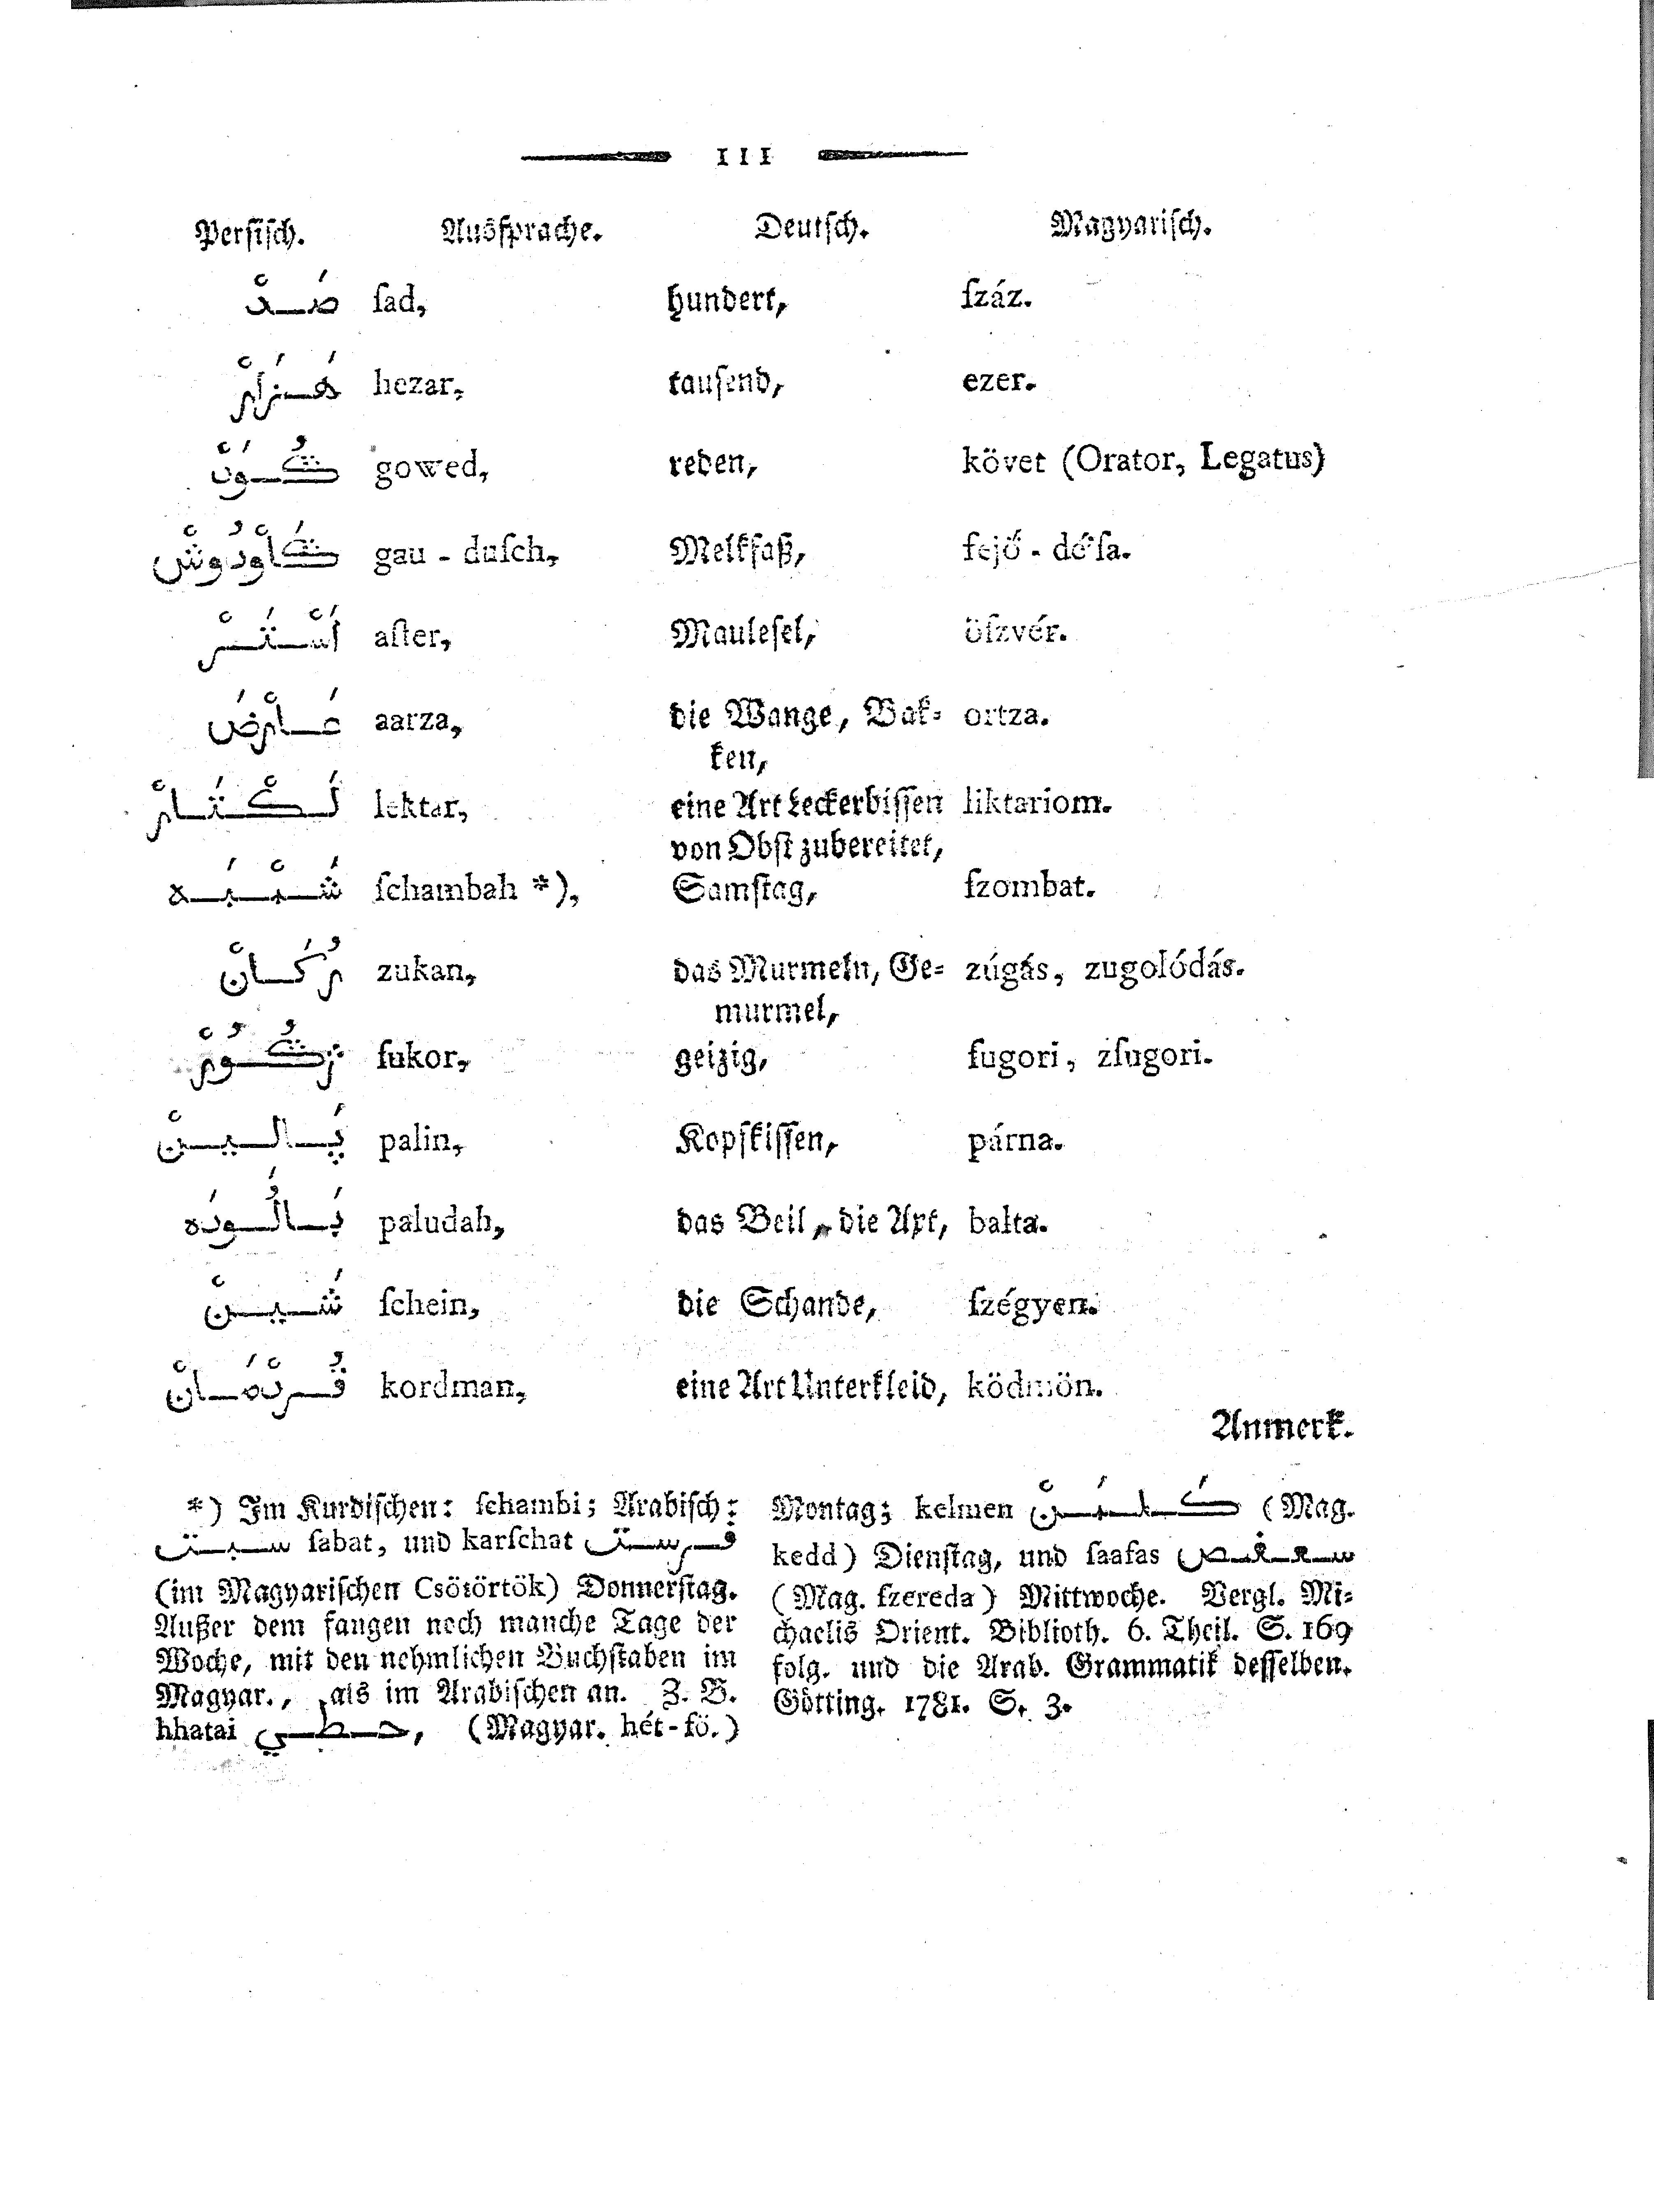 111
Persisch. Aussprache. Deutsch. Magyarisch.
صَدْ ſad, hundert, ſzáz.
هَزَارْ hezar, tauſend, ezer.
gowed, reden, követ (Orator, Legatus)
گَاْودُوشْ gau - duſch, Melkfaß, fejő - déſa.
اَسْتَرْ aſter, Mauleſel, öſzvér.
عَارْضَ aarza, die Wange, Bak⸗ ortza.
ken,
لَكْتَارْ lektar, eine Art Leckerbiſſen liktariom.
von Obſt zubereitet,
شَنْبَه ſchambah *), Samſtag, ſzombat.
زُكَانْ zukan, das Murmeln, Ge⸗ zúgás, zugolódás.
murmel,
ژُگُورْ ſukor, geizig, ſugori, zſugori.
پَالينْ palin, Kopfkiſſen, párna.
paludah, das Beil, die Axt, balta.
شَينْ ſchein, die Schande, ſzégyen.
قُرْدْمَانْ kordman, eine Art Unterkleid, ködmön.
Anmerk.
*) Im Kurdiſchen: ſchambi; Arabiſch:
سبت ſabat, und karſchat قرست
(im Magyariſchen Csötörtök) Donnerſtag.
Außer dem fangen noch manche Tage der
Woche, mit den nehmlichen Buchſtaben im
Magyar., als im Arabiſchen an. Z. B.
hhatai حطي, (Magyar. hét-fö.)
Montag; kelmen كَلمَنْ (Mag.
kedd) Dienſtag, und ſaafas سعفص
(Mag. ſzereda) Mittwoche. Vergl. Mi⸗
chaelis Orient. Biblioth. 6. Theil. S. 169
folg. und die Arab. Grammatik deſſelben.
Götting. 1781. S. 3.